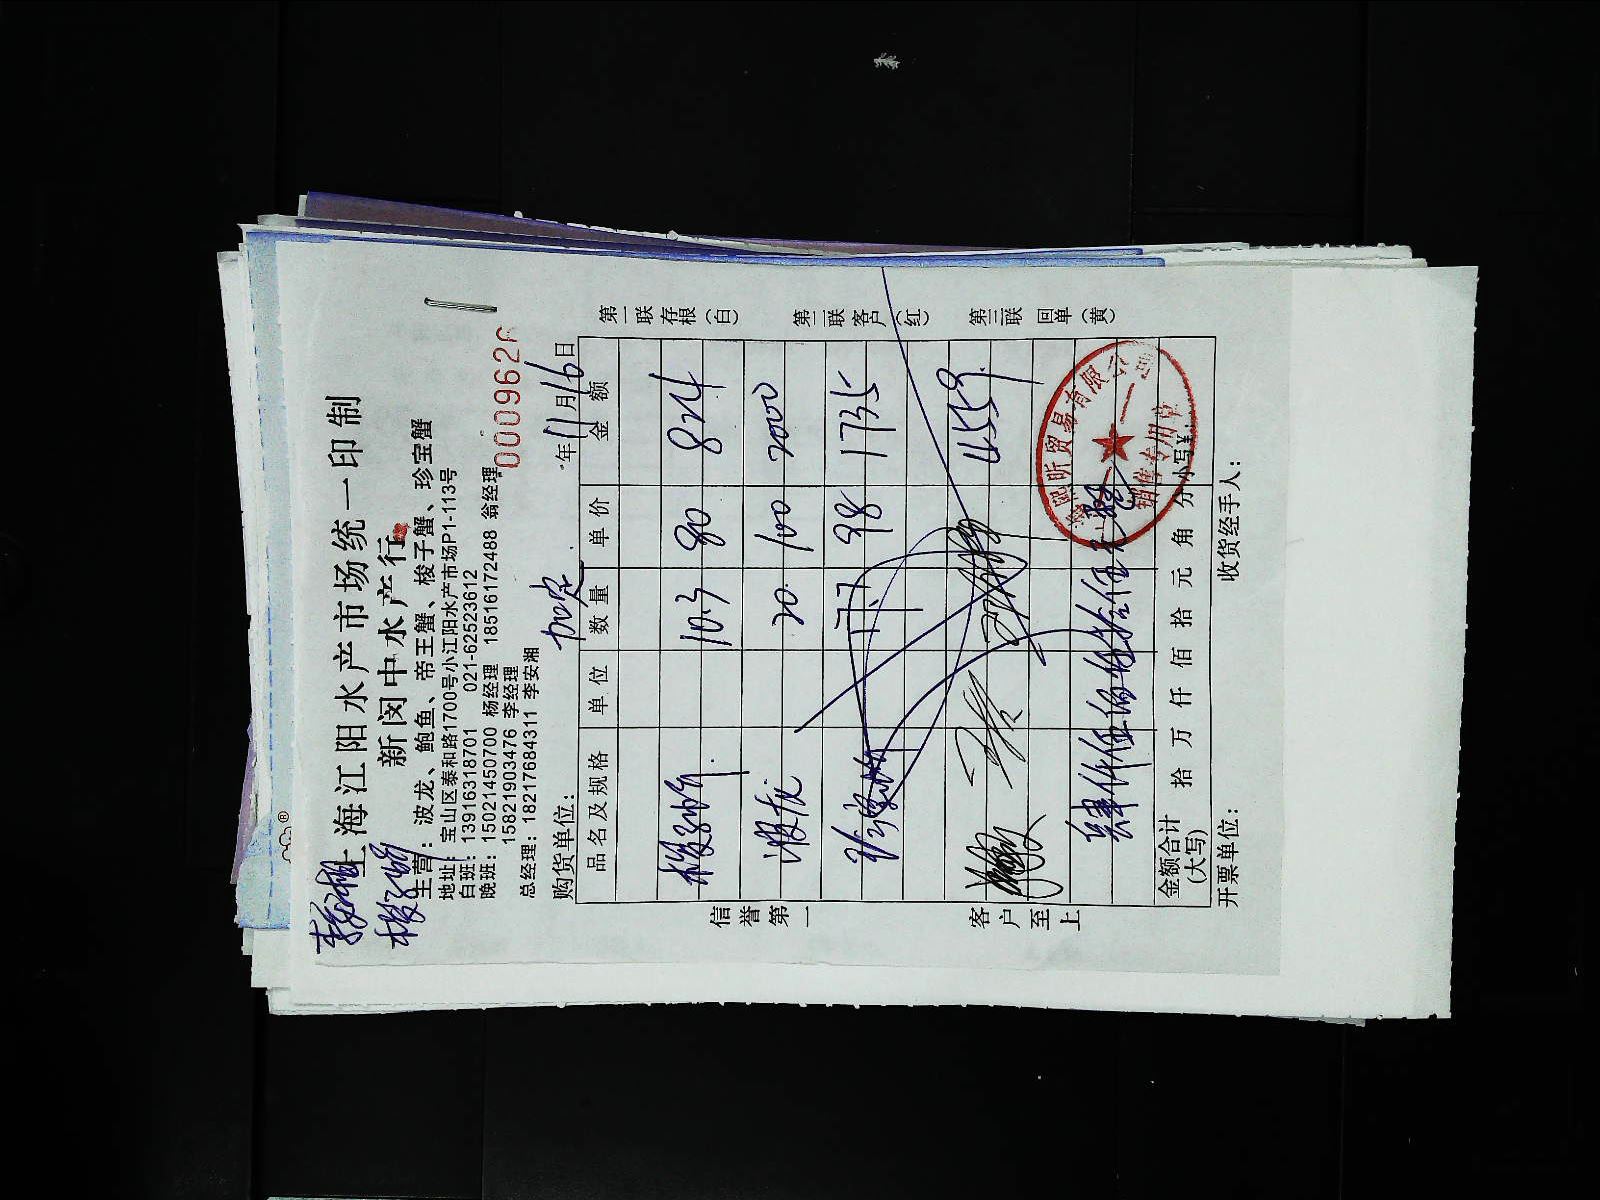 上海江阳水产市场统一印制
新闵中水产行
主营：波龙、鲍鱼、帝王蟹、梭子蟹、珍宝蟹
地址：宝山区泰和路1700号小江阳水产市场P1-113号
白班：13916318701 021-62523612
晚班：15021450700 杨经理 18516172488 翁经理
15821903476 李经理
总经理：18217684311 李安湘
000962
购货单位： 加定 年11月16日
品名及规格 单位 数量 单价 金额
梭子蟹 10.3 80 824
波龙 20 100 2000
珍宝蟹 17.7 98 1735
4559
金额合计(大写) 拾 万 仟 佰 拾 元 角 分 小写¥
开票单位： 收货经手人：
信誉第一
客户至上
第一联存根(白)
第二联客户(红)
第三联回单(黄)
贸易有限公司
销售专用章